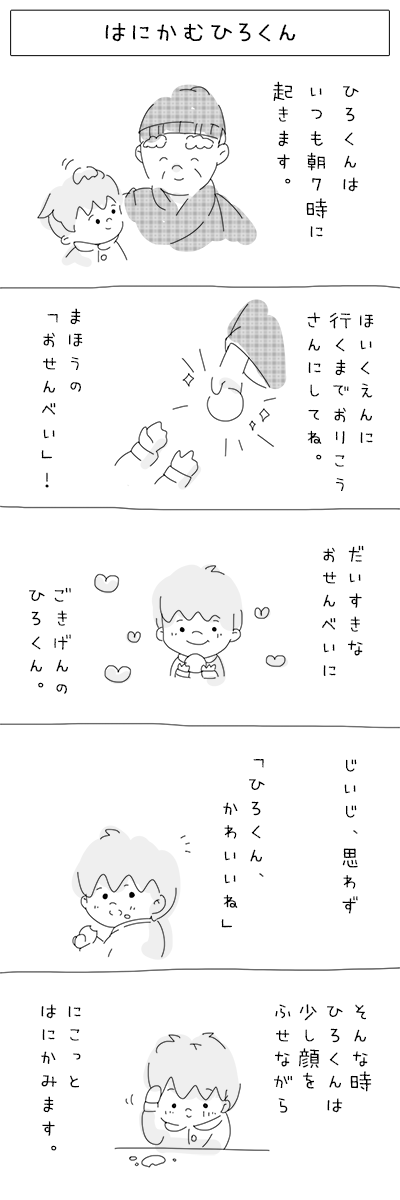 はにかむひろくん
ひろくんは
いつも朝7時に
起きます。
ほいくえんに
行くまでおりこう
さんにしてね。
まほうの
「おせんべい」！
だいすきな
おせんべいに
ごきげんの
ひろくん。
じいじ、思わず
「ひろくん、
かわいいね」
そんな時
ひろくんは
少し顔を
ふせながら
にこっと
はにかみます。